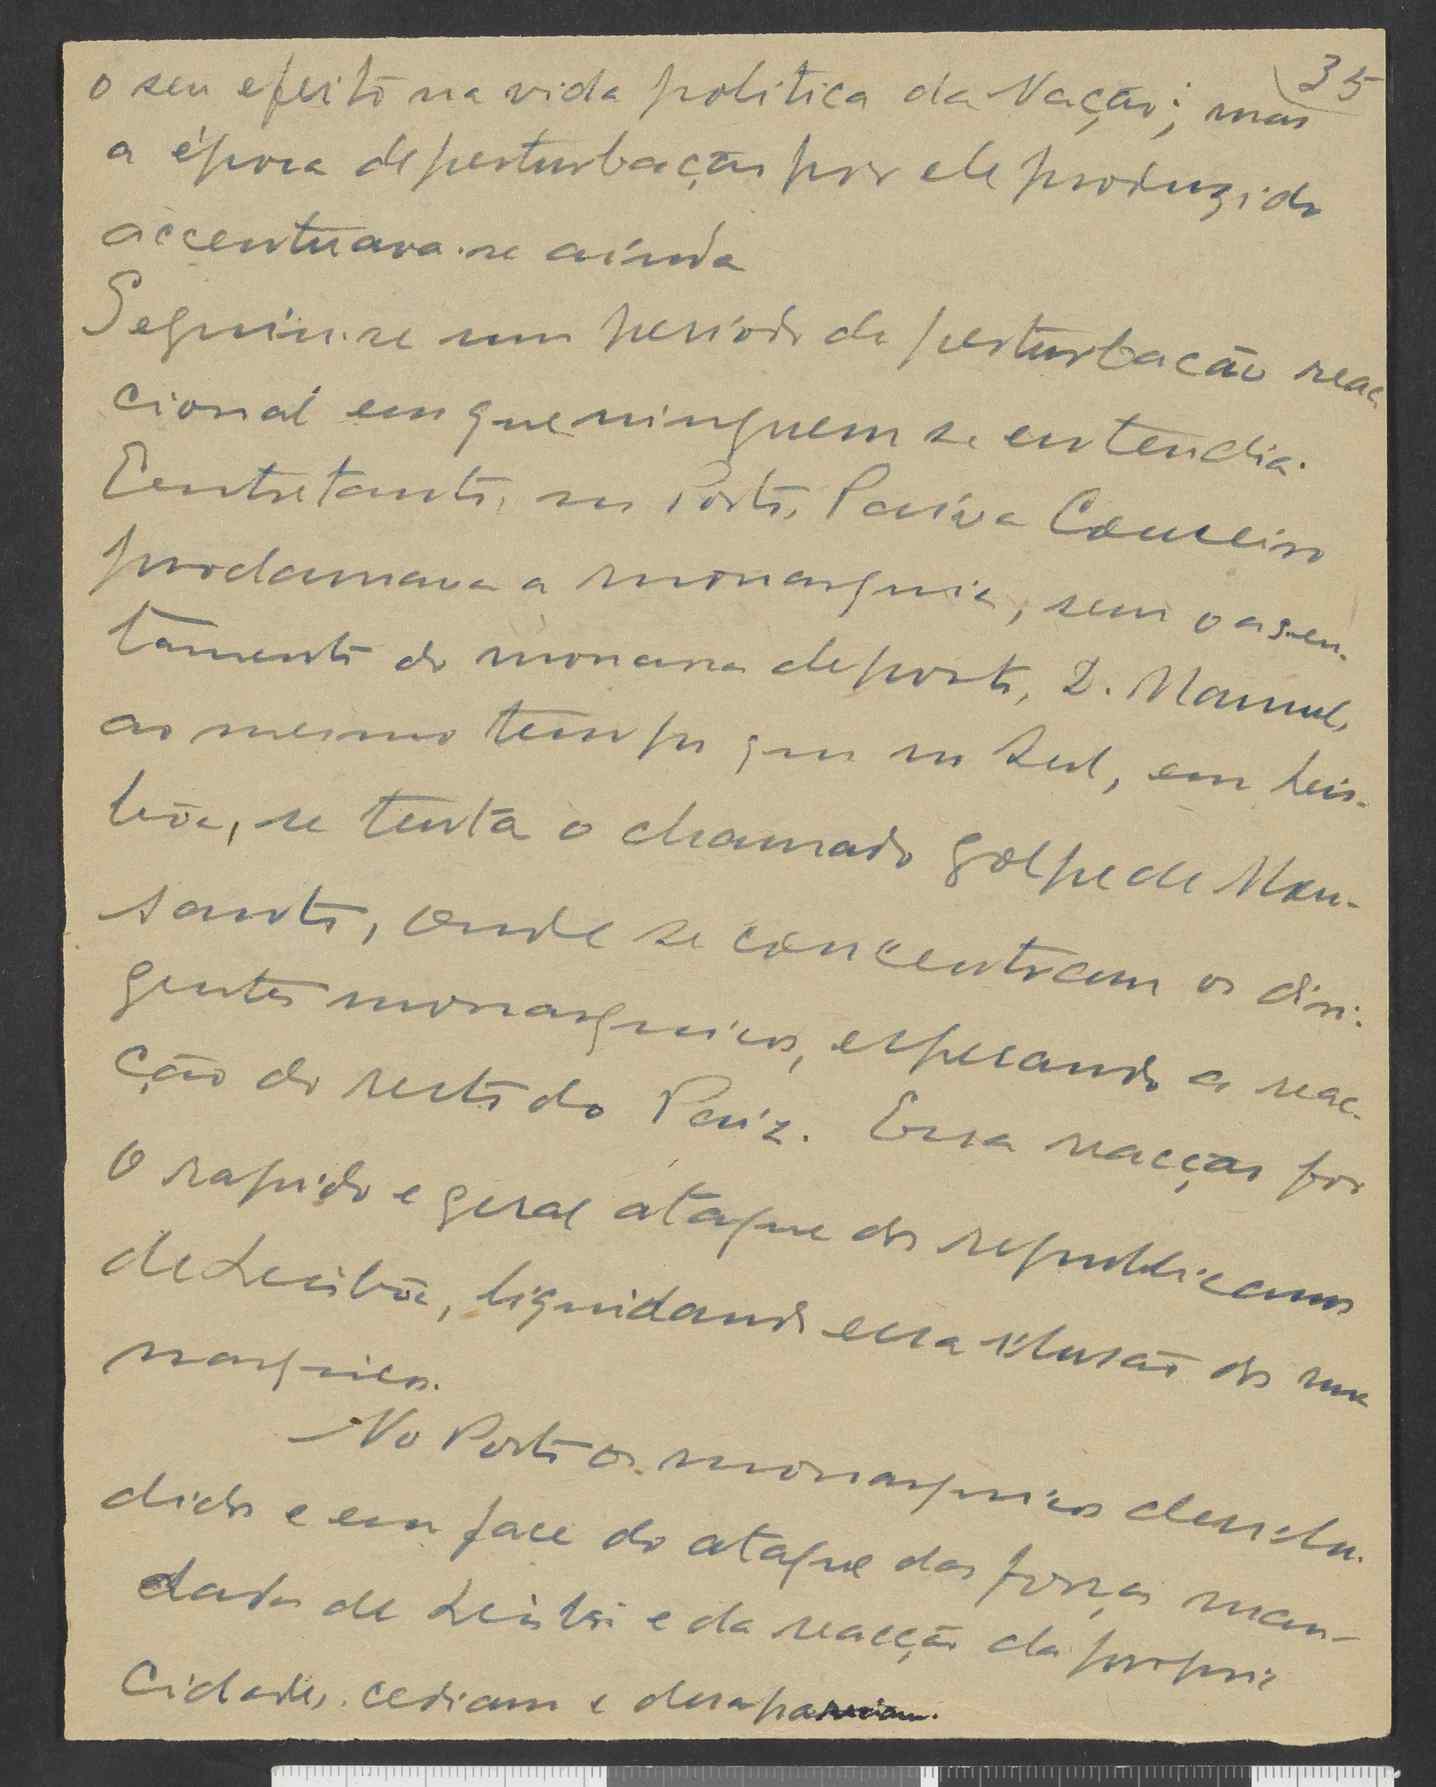 35
o seu efeito na vida politica da Nação; mas
a época de perturbação por ele produzido
accentuava-se ainda
Seguiu-se um periodo de perturbacão reac
cional em que ninguem se entendia.
Eentretanto, no Porto, Paiva Couceiro
proclamava a monarquia, sem o assen-
tamento do monarca deposto, D. Manuel,
ao mesmo tempo que no Sul, em Leis-
bôa, se tenta o chamado golpe de Mon-
santo, onde se concentram os diri-
gentes monarquicos, esperando a reac-
ção do resto do Paiz. Essa reacção foi
o rapido e geral ataque dos republicanos
de Leisbôa, liquidando essa ilusão dos mo
narquicos.
No Porto os monarquicos desilu-
didos e em face do ataque das forças man-
dadas de Leisbôa e da reacção da propria
Cidade, cediam e desapareciam.